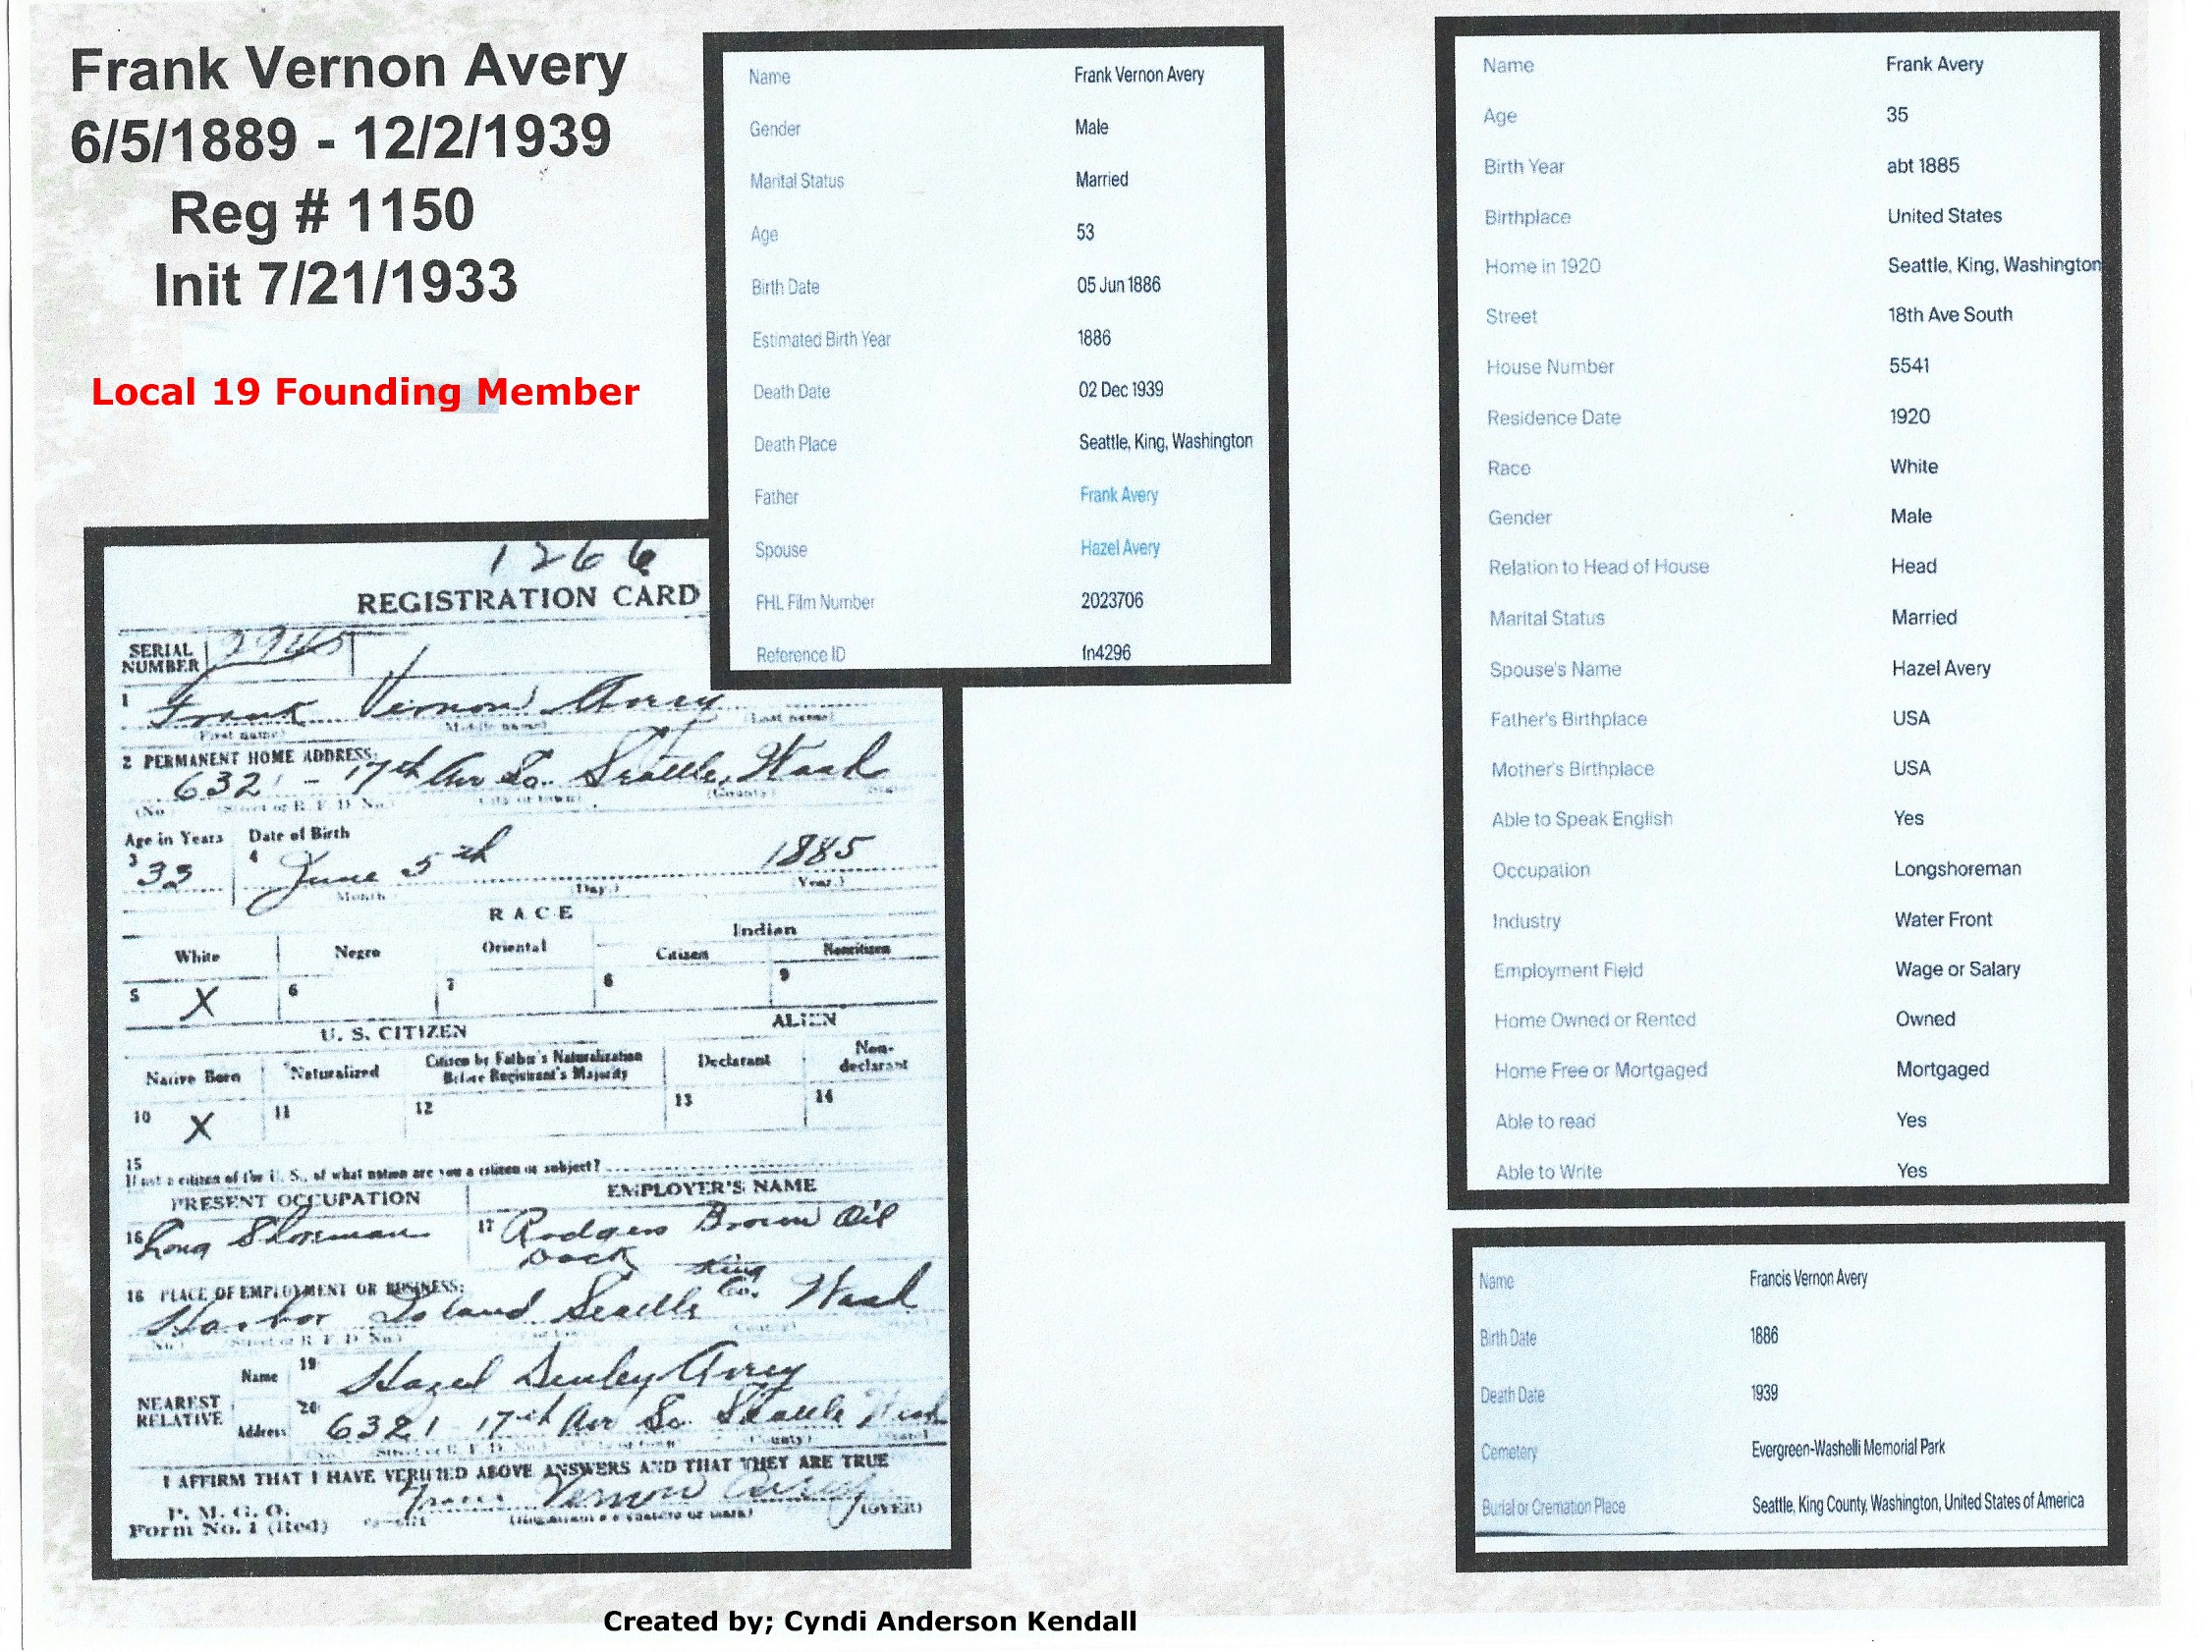 Frank Vernon Avery
6/5/1889 - 12/2/1939
Reg # 1150
Init 7/21/1933
Local 19 Founding Member
Name Frank Vernon Avery
Gender Male
Marital Status Married
Age 53
Birth Date 05 Jun 1886
Estimated Birth Year 1886
Death Date 02 Dec 1939
Death Place Seattle, King, Washington
Father Frank Avery
Spouse Hazel Avery
FHL Film Number 2023706
Reference ID fn4296
Name Frank Avery
Age 35
Birth Year abt 1885
Birthplace United States
Home in 1920 Seattle, King, Washington
Street 18th Ave South
House Number 5541
Residence Date 1920
Race White
Gender Male
Relation to Head of House Head
Marital Status Married
Spouse's Name Hazel Avery
Father's Birthplace USA
Mother's Birthplace USA
Able to Speak English Yes
Occupation Longshoreman
Industry Water Front
Employment Field Wage or Salary
Home Owned or Rented Owned
Home Free or Mortgaged Mortgaged
Able to read Yes
Able to Write Yes
Name Francis Vernon Avery
Birth Date 1886
Death Date 1939
Cemetery Evergreen-Washelli Memorial Park
Burial or Cremation Place Seattle, King County, Washington, United States of America
1266
REGISTRATION CARD
SERIAL NUMBER
1 Frank Vernon Avery
(First name) (Middle name) (Last name)
2 PERMANENT HOME ADDRESS:
6321 - 17th Av So. Seattle, Wash
(No.) (Street or R. F. D. No.) (City or town) (County) (State)
Age in Years Date of Birth
3 33 4 June 5th 1885
Month (Day.) (Year.)
RACE
White Negro Oriental Indian
Citizen Noncitizen
5 X 6 7 8 9
U. S. CITIZEN ALIEN
Native Born Naturalized Citizen by Father's Naturalization Before Registrant's Majority Declarant Non-declarant
10 X 11 12 13 14
15
If not a citizen of the U. S., of what nation are you a citizen or subject?
PRESENT OCCUPATION EMPLOYER'S NAME
16 Long Shoreman 17 Rodgers Brown Oil
Dock King
18 PLACE OF EMPLOYMENT OR BUSINESS:
Harbor Island Seattle Co. Wash
(No.) (Street or R. F. D. No.) (County)
NEAREST RELATIVE
Name 19 Hazel Avery
Address 20 6321 17th Av So Seattle Wash
I AFFIRM THAT I HAVE VERIFIED ABOVE ANSWERS AND THAT THEY ARE TRUE
P. M. G. O.
Form No. 1 (Red) Vernon Avery
(Registrant's signature or mark) (OVER)
Created by; Cyndi Anderson Kendall